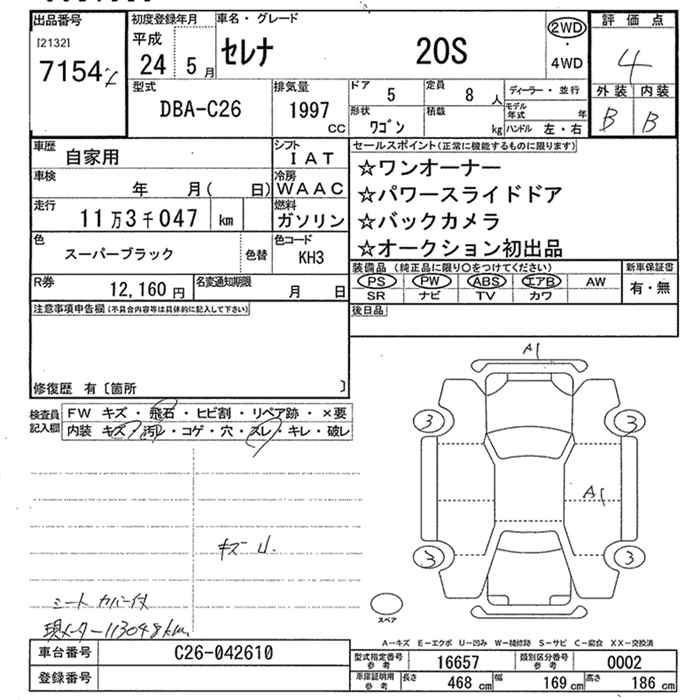 出品番号
[2132]
7154
初度登録年月
平成
24 5月
車名・グレード
セレナ 20S
2WD
・
4WD
評価点
4
外装 内装
B B
型式
DBA-C26
排気量
1997
CC
ドア
5
定員
8人
ディーラー・並行
形状
ワゴン
積載
kg
モデル年式 年
ハンドル 左・右
車歴
自家用
シフト
IAT
車検
年 月( 日)
冷房
WAAC
走行
11万3千047 km
燃料
ガソリン
色
スーパーブラック
色替
色コード
KH3
R券
12,160円
名変通知期限
月 日
セールスポイント(正常に機能するものに限ります)
☆ワンオーナー
☆パワースライドドア
☆バックカメラ
☆オークション初出品
装備品 (純正品に限り○をつけてください)
PS PW ABS エアB AW
SR ナビ TV カワ
新車保証書
有・無
後日品
注意事項申告欄(不具合内容等は具体的に記入して下さい)
修復歴 有〔箇所 〕
検査員記入欄
FW キズ・飛石・ヒビ割・リペア跡・×要
内装 キズ・汚レ・コゲ・穴・スレ・キレ・破レ
キズ U.
シートカバー付
現メーター113048km
A1
3 3
A1
3 3
スペア
A-キズ E-エクボ U-凹み W-補修跡 S-サビ C-腐食 XX-交換済
車台番号
C26-042610
登録番号
型式指定番号
参考
16657
類別区分番号
参考
0002
車庫証明用
参考
長さ 468 cm 幅 169 cm 高さ 186 cm